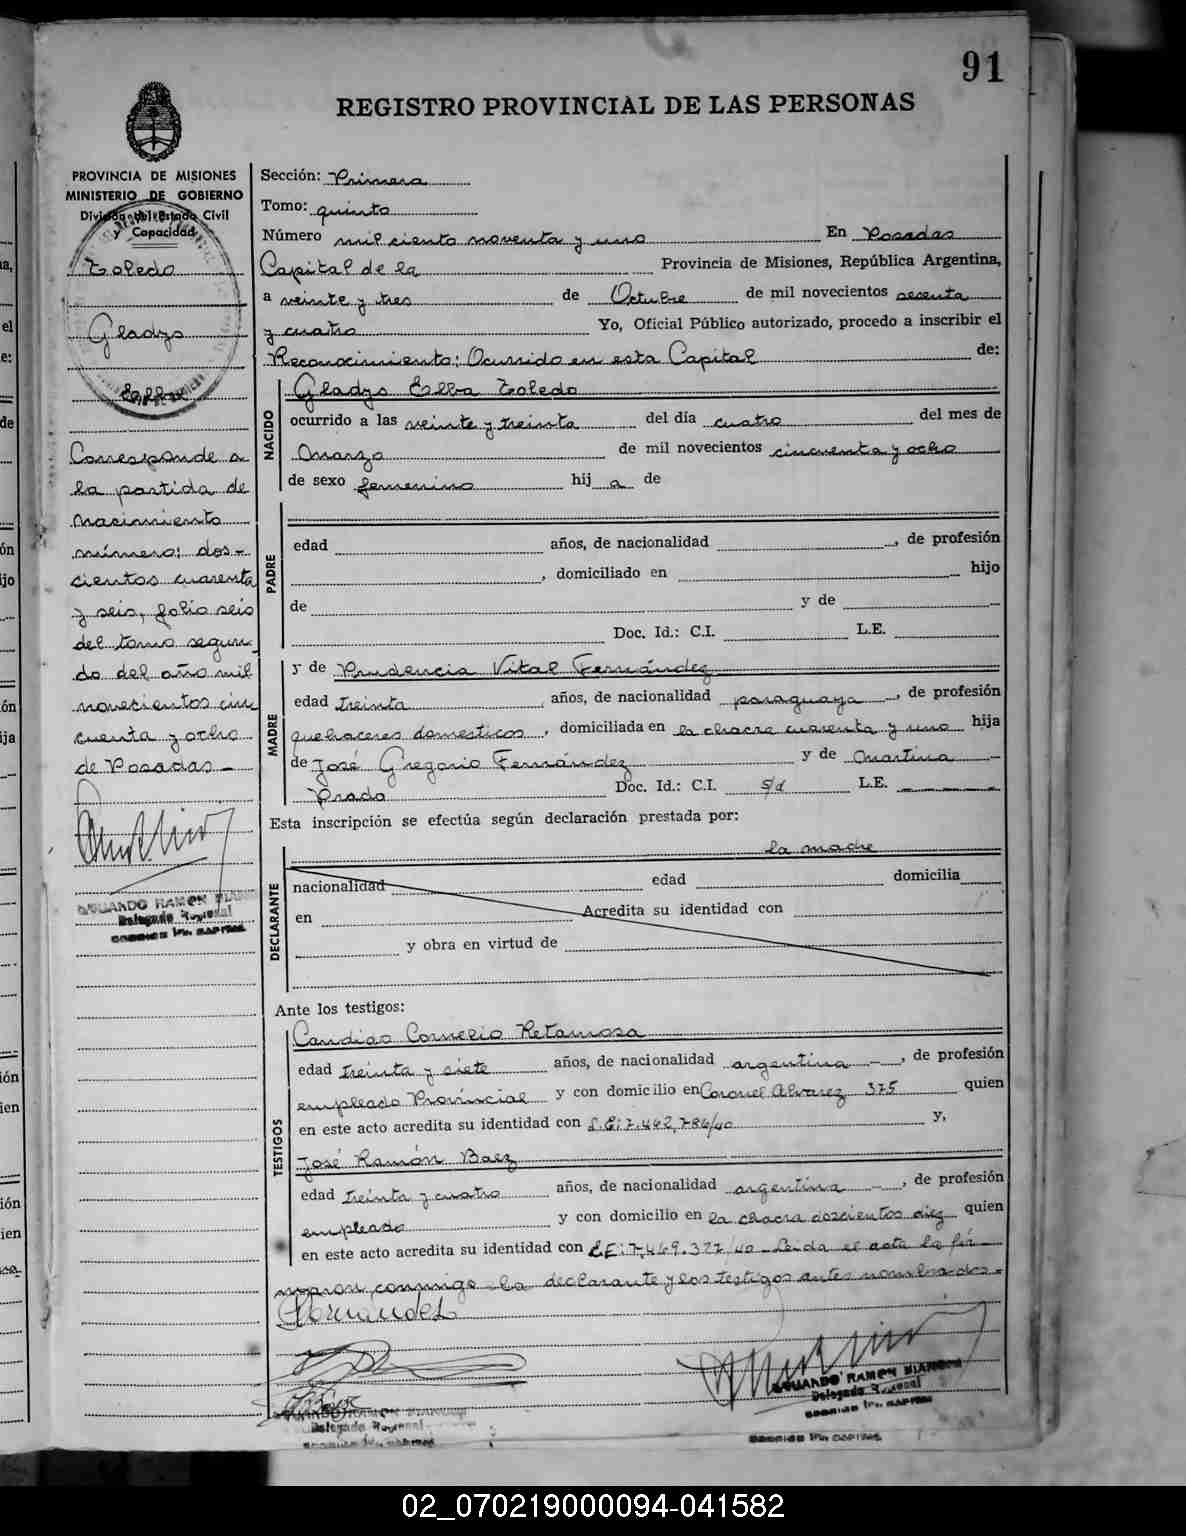 91
REGISTRO PROVINCIAL DE LAS PERSONAS
PROVINCIA DE MISIONES
MINISTERIO DE GOBIERNO
División del Estado Civil
y Capacidad
Toledo
Gladys
Elba
Corresponde a
la partida de
nacimiento
número: dos-
cientos cuarenta
y seis, folio seis
del tomo segun-
do del año mil
novecientos cin
cuenta y ocho
de Posadas -
EDUARDO RAMON
Delegado Regional
Sección: Primera
Tomo: quinto
Número mil ciento noventa y uno En Posadas
Capital de la Provincia de Misiones, República Argentina,
a veinte y tres de Octubre de mil novecientos sesenta
y cuatro Yo, Oficial Público autorizado, procedo a inscribir el
Reconocimiento: Ocurrido en esta Capital de:
NACIDO
Gladys Elba Toledo
ocurrido a las veinte y treinta del día cuatro del mes de
Marzo de mil novecientos cincuenta y ocho
de sexo femenino hij a de
PADRE
edad años, de nacionalidad , de profesión
, domiciliado en hijo
de y de
Doc. Id.: C.I. L.E.
MADRE
y de Prudencia Vital Fernández
edad treinta años, de nacionalidad paraguaya , de profesión
quehaceres domesticos , domiciliada en la chacra cuarenta y uno hija
de José Gregorio Fernández y de Martina
Prado Doc. Id.: C.I. s/d L.E.
Esta inscripción se efectúa según declaración prestada por:
la madre
DECLARANTE
nacionalidad edad domicilia
en Acredita su identidad con
y obra en virtud de
Ante los testigos:
TESTIGOS
Candido Cornelio Retamosa
edad treinta y siete años, de nacionalidad argentina - , de profesión
empleado Provincial y con domicilio en Coronel Alvarez 375 quien
en este acto acredita su identidad con L.E: y,
José Ramón Baez
edad treinta y cuatro años, de nacionalidad argentina - , de profesión
empleado y con domicilio en la chacra doscientos diez quien
en este acto acredita su identidad con L.E: Leida el acta la fir-
maron conmigo la declarante y los testigos antes nombrados.-
Fernandez
EDUARDO RAMON
Delegado Regional
EDUARDO RAMON
Delegado Regional
02_070219000094-041582